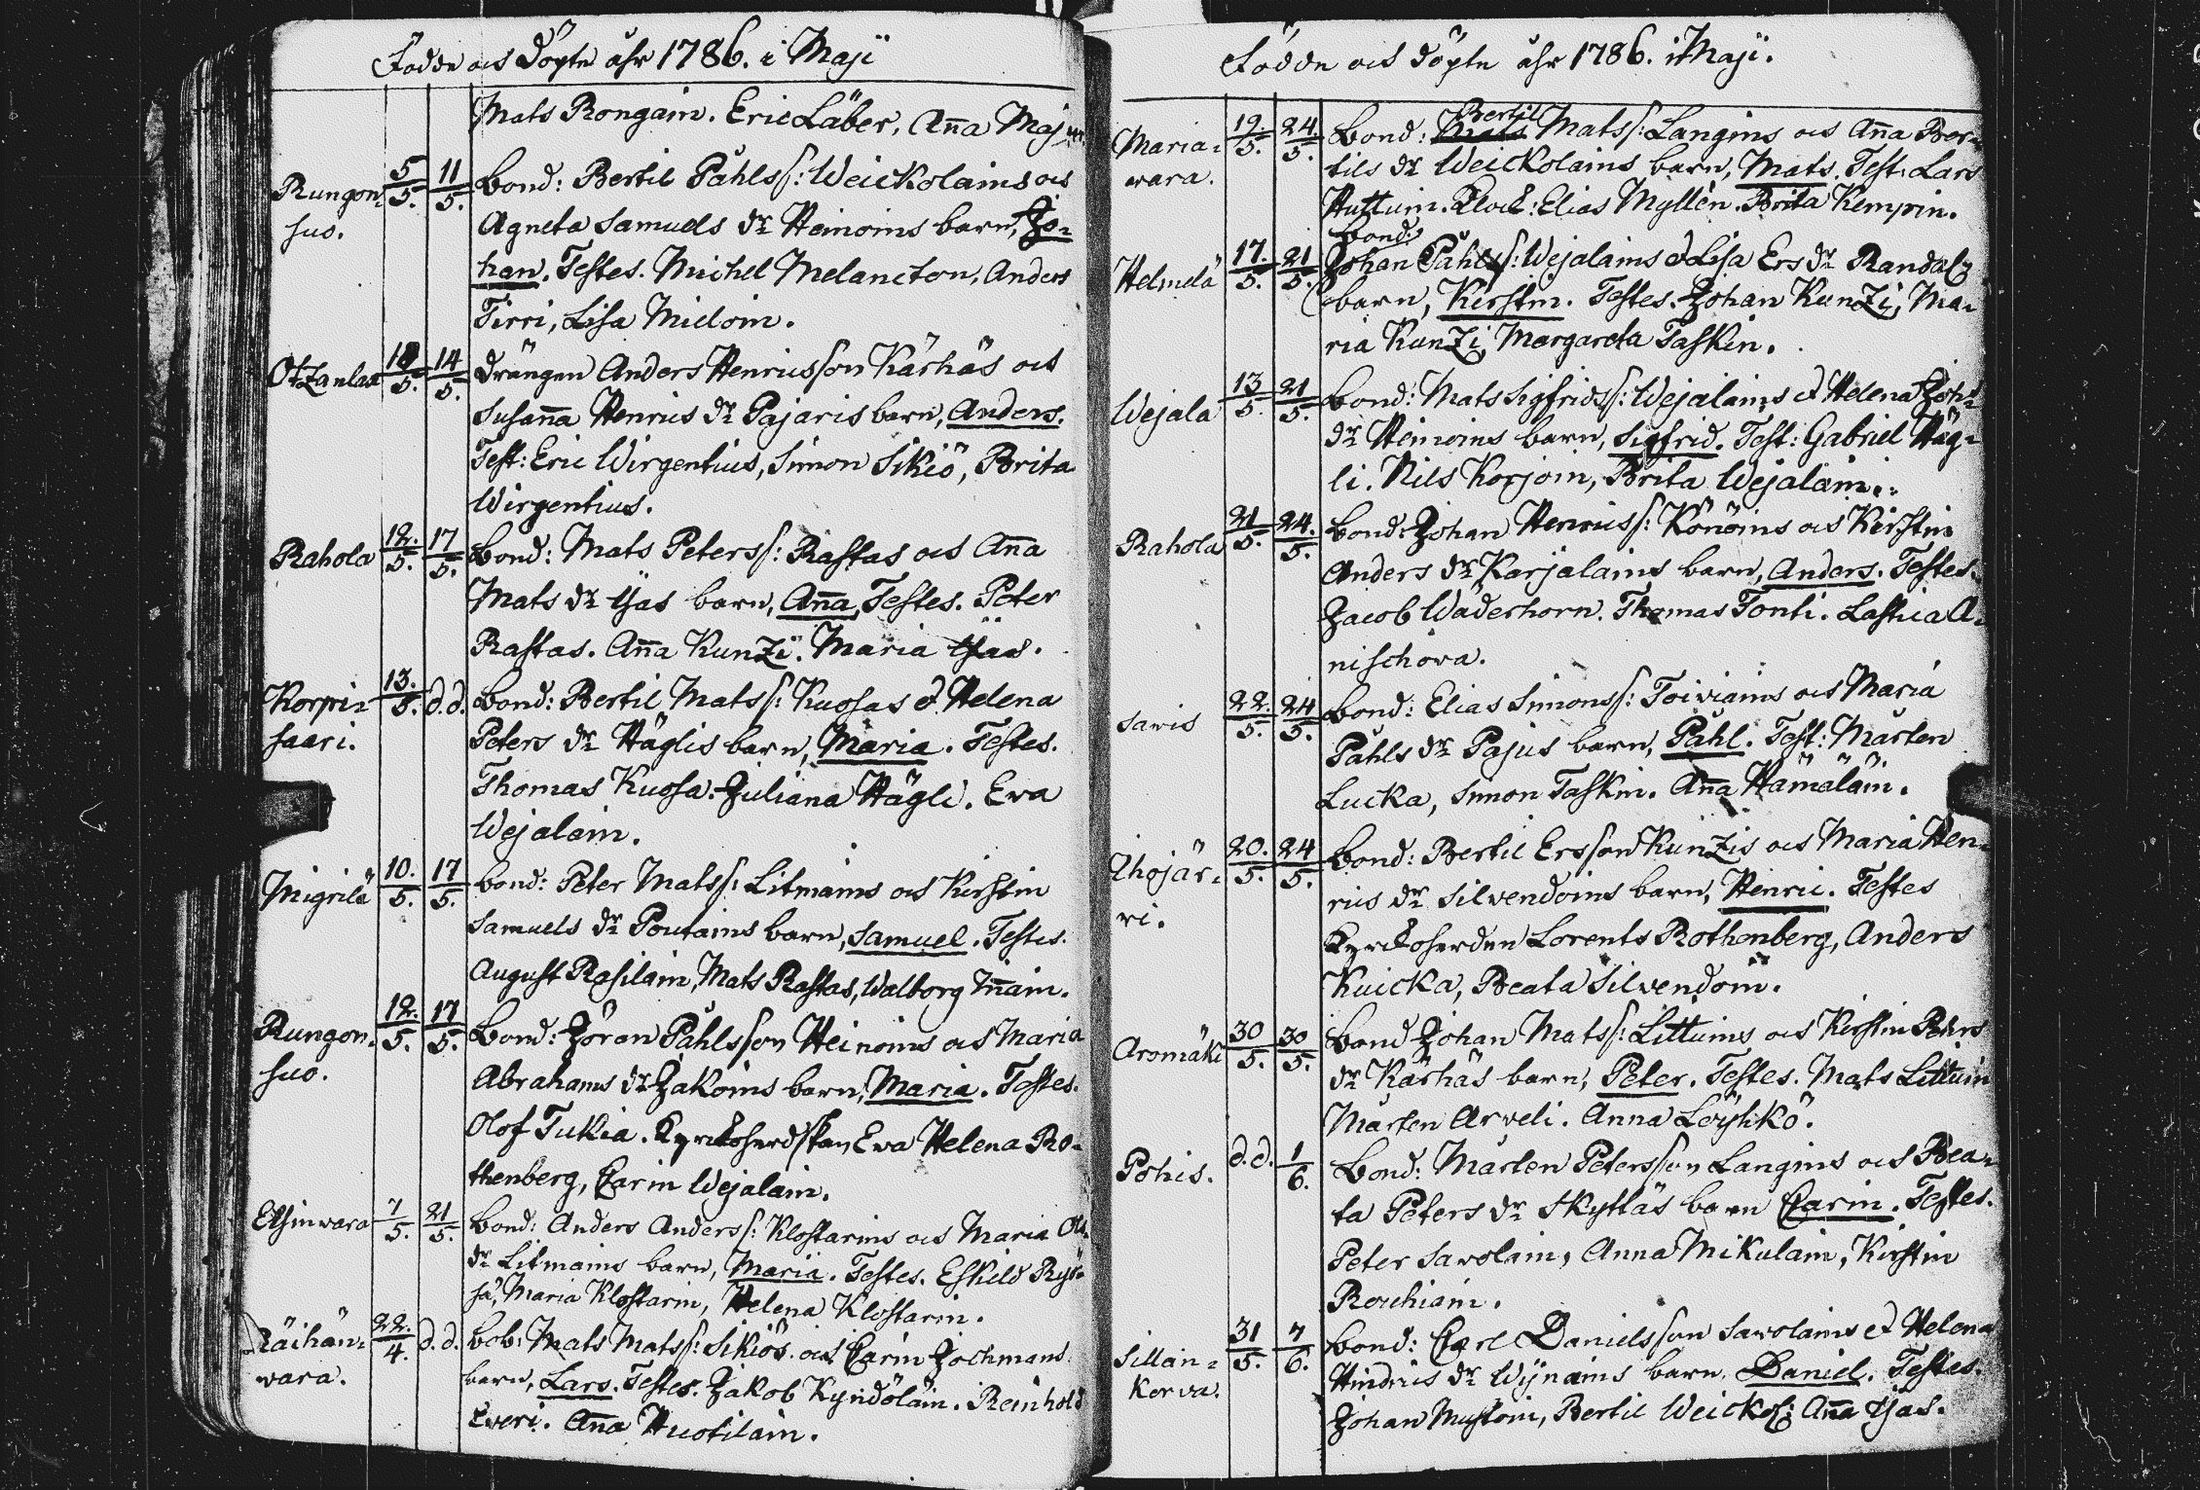 Födde och Döpte åhr 1786. i Maji
Mats Rongain. Eric Läber, Aña Maj
Rungon= 5/5. 11/5. Bond: Bertil Påhls s: Weickolains och
suo. Agneta Samuels dr Heinoins barn, Jo=
han. Testes. Michel Melancton, Anders
Tirri, Lisa Mieloin.
Otzanlax 10/5. 14/5. Drängen Anders Henricsson Kärhäs och
Susaña Henrics dr Pajaris barn, Anders.
Test: Eric Wirgentius, Simon Sikiö, Brita
Wirgentius.
Rahola 12./5. 17/5. Bond: Mats Peters s: Rastas och Aña
Mats dr Ijas barn, Aña, Testes. Peter
Rastas. Aña Kunzi. Maria Ijas.
Korpi= 13./5. d.d. Bond: Bertil Mats s: Kuosas et Helena
saari. Peters dr Häglis barn, Maria. Testes.
Thomas Kuosa. Juliana Hägli. Eva
Wejalain.
Migrilä 10./5. 17/5. Bond: Peter Mats s: Litmains och Kirstin
Samuels dr Poutains barn, Samuel. Testes.
August Rasilain, Mats Rastas, Walborg Iñain.
Rungon= 12./5. 17/5. Bond: Jöran Påhlsson Heinoins och Maria
suo. Abrahams dr Jakoins barn, Maria. Testes.
Olof Tukia. Kyrckoherdskan Eva Helena Ro=
thenberg, Carin Wejalain.
Elsinwara 7/5. 21/5. Bond: Anders Anders s: Klostarins och Maria
dr Litmains barn, Maria. Testes. Eskild Rys=
sä, Maria Klostarin, Helena Klostarin.
Räihän= 22./4. d.d. bob: Mats Mats s: Sikiös och Carin Jochmans
wara. barn, Lars. Testes. Jakob Kyndöläin. Reinhold
Everi. Aña Huotilain.
Födde och Döpte åhr 1786. i Maji.
Bertil
Maria= 19./5. 24./5. Bond: Mats Mats s: Langins och Aña Ber=
wara. tils dr Weickolains barn, Mats. Test: Lars
Huttuin. Klock: Elias Myllén. Brita Kempin.
Bond:
Helmelä 17./5. 21/5. Johan Påhls s: Wejalains et Lisa Ers dr Randalz
barn, Kirstin. Testes. Johan Kunzi, Ma=
ria Kunzi, Margareta Taskin.
Wejala 13/5. 21/5. Bond: Mats Sigfrids s: Wejalains et Helena Joh:
dr Heinoins barn, Sigfrid. Test: Gabriel Häg=
li. Nils Korjoin, Brita Wejalain.
Rahola 21/5. 24./5. Bond: Johan Henrics s: Könöins och Kirstin
Anders dr Karjalains barn, Anders. Testes.
Jacob Wäderhorn. Thomas Tonti. Lastica A=
nischova.
Saris 22./5. 24/5. Bond: Elias Simons s: Toiviains och Maria
Påhls dr Pajus barn, Påhl. Test: Mårten
Lucka, Simon Taskin. Aña Hämäläin.
Ihojär= 20./5. 24/5. Bond: Bertil Ersson Kunzis och Maria Hen=
vi. rics dr Silvendoins barn, Henric. Testes
Kyrckoherden Lorents Rothenberg, Anders
Kuicka, Beata Silvendoin.
Aromäki 30/5. 30/5. Bond Johan Mats s: Littuins och Kirstin Peters
dr Kärhäs barn, Peter. Testes. Mats Littuin
Mårten Arveli. Anna Löyskö.
Pohis. d.d. 1/6. Bond: Mårten Petersson Langins och Bea=
ta Peters dr Skyttäs barn Carin. Testes.
Peter Savolain, Anna Mikulain, Kirstin
Rouhiain.
Sillan= 31/5. 7/6. Bond: Carl Danielsson Savolains et Helena
Korva. Hindrics dr Wijnains barn. Daniel. Testes.
Johan Mustoin, Bertil Weickol: Aña Ijas.